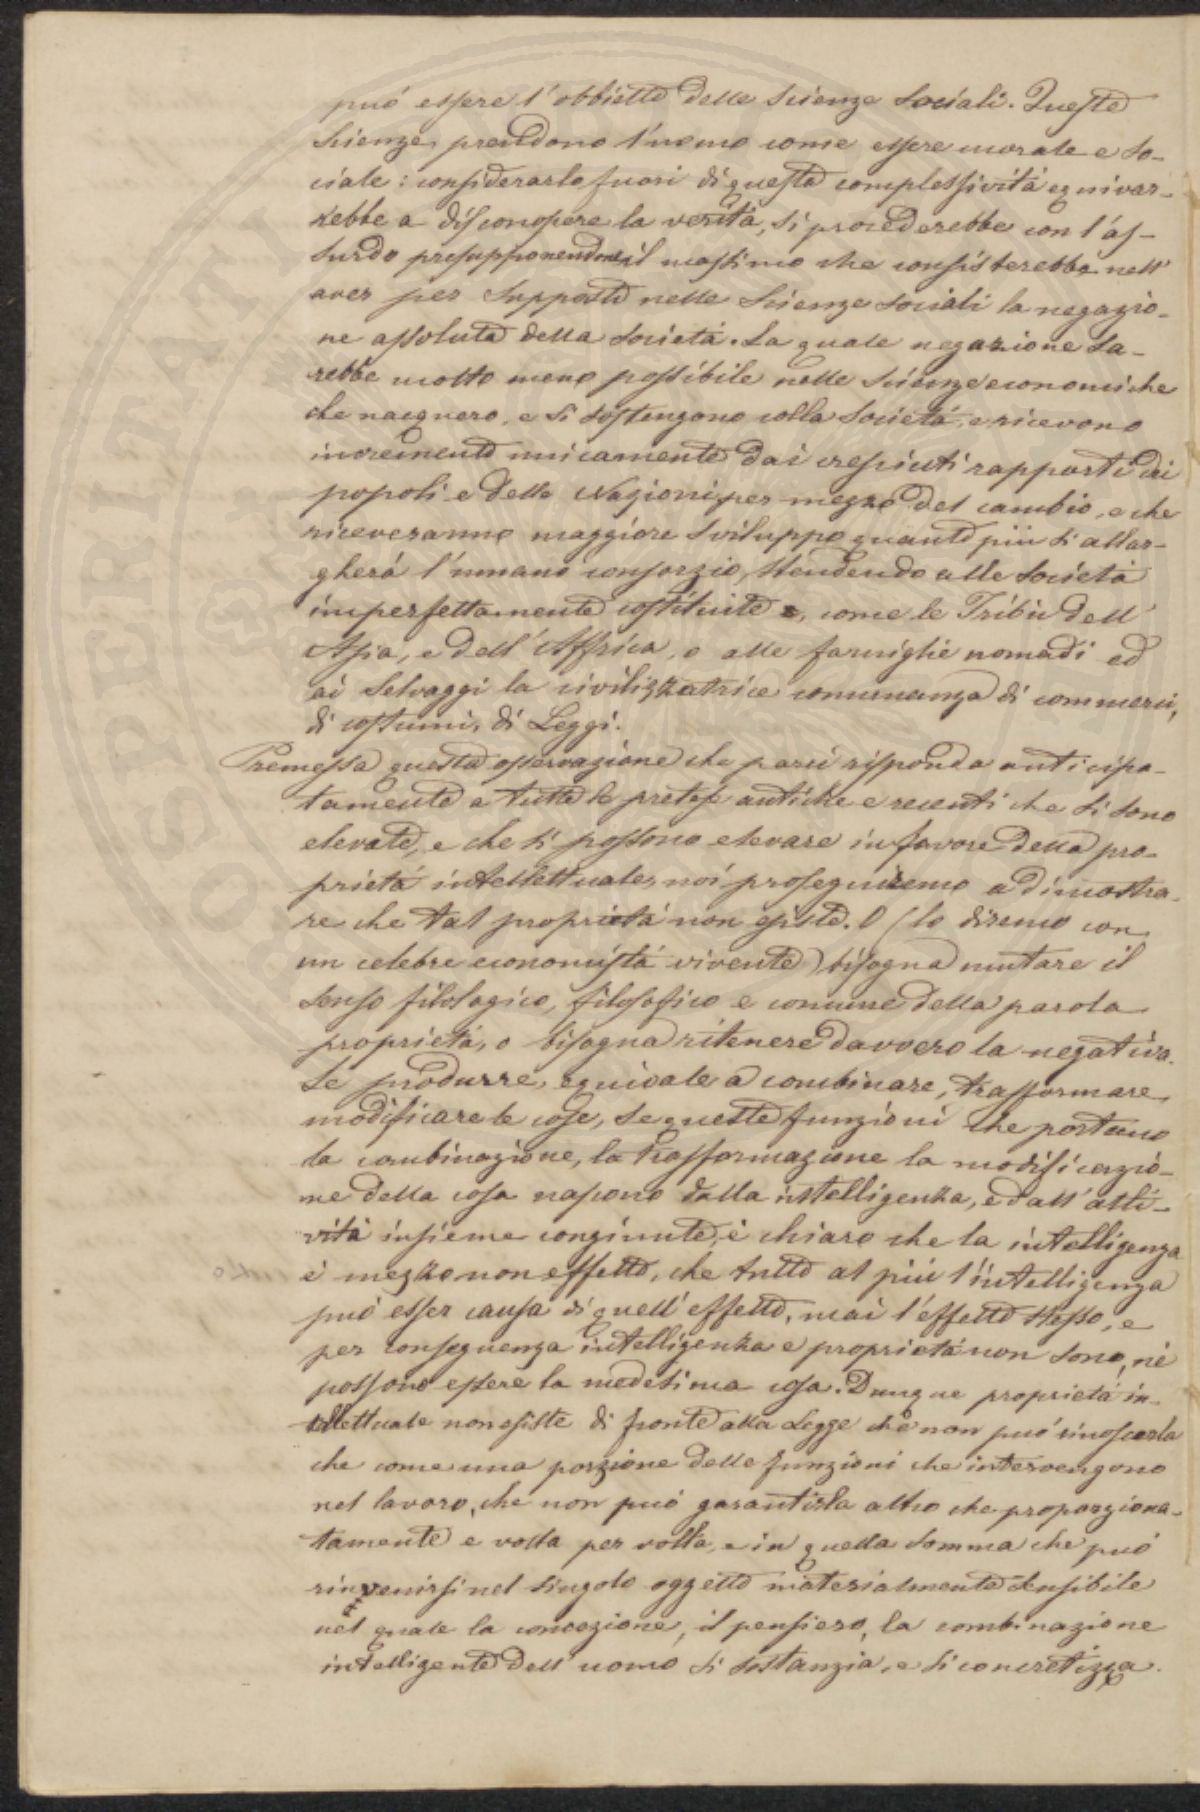 può essere l'obbietto delle Scienze Sociali. Queste
Scienze, prendono l'uomo come essere morale e so-
ciale: considerarlo fuori di questa complessività equivar-
rebbe a disconoscere la verità, si procederebbe con l'as-
surdo presupponendone il massimo che consisterebbe nell'
aver per supposto nelle Scienze Sociali la negazio-
ne assoluta della Società. La quale negazione sa-
rebbe molto meno possibile nelle Scienze economiche
che nacquero, e si sostengono colla Società, e ricevono
incremento unicamente dai cresciuti rapporti dei
popoli e delle Nazioni per mezzo del cambio, e che
riceveranno maggiore sviluppo quanto più si allar-
gherà l'umano consorzio, stendendo alle Società
imperfettamente costituite, come le Tribù dell'
Asia, e dell'Affrica, o alle famiglie nomadi ed
ai Selvaggi la civilizzatrice comunanza di commerci,
di costumi, di Leggi.
Premessa questa osservazione che parci risponda anticipa-
tamente a tutte le pretese antiche e recenti che si sono
elevate, e che si possono elevare in favore della pro-
prietà intellettuale, noi proseguiremo a dimostra-
re che tal proprietà non esiste. O (lo diremo con
un celebre economista vivente) bisogna mutare il
senso filologico, filosofico e comune della parola
proprietà, o bisogna ritenere davvero la negativa.
Se produrre, equivale a combinare, trasformare,
modificare le cose, se queste funzioni che portano
la combinazione, la trasformazione la modificazio-
ne della cosa nascono dalla intelligenza, e dall'atti-
vità insieme congiunte, è chiaro che la intelligenza
è mezzo non effetto, che tutto al più l'intelligenza
può esser causa di quell'effetto, mai l'effetto stesso, e
per conseguenza intelligenza e proprietà non sono, nè
possono essere la medesima cosa. Dunque proprietà in-
tellettuale non esiste di fronte alla Legge che non può riconoscerla
che come una porzione delle funzioni che intervengono
nel lavoro, che non può garantirla altro che proporziona-
tamente e volta per volta, e in quella somma che può
rinvenirsi nel singolo oggetto materialmente sensibile
nel quale la concezione, il pensiero, la combinazione
intelligente dell'uomo si sostanzia, e si concretizza.